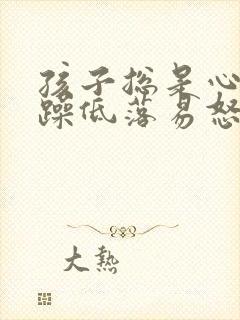 孩子总是心
躁低落易怒
大熱